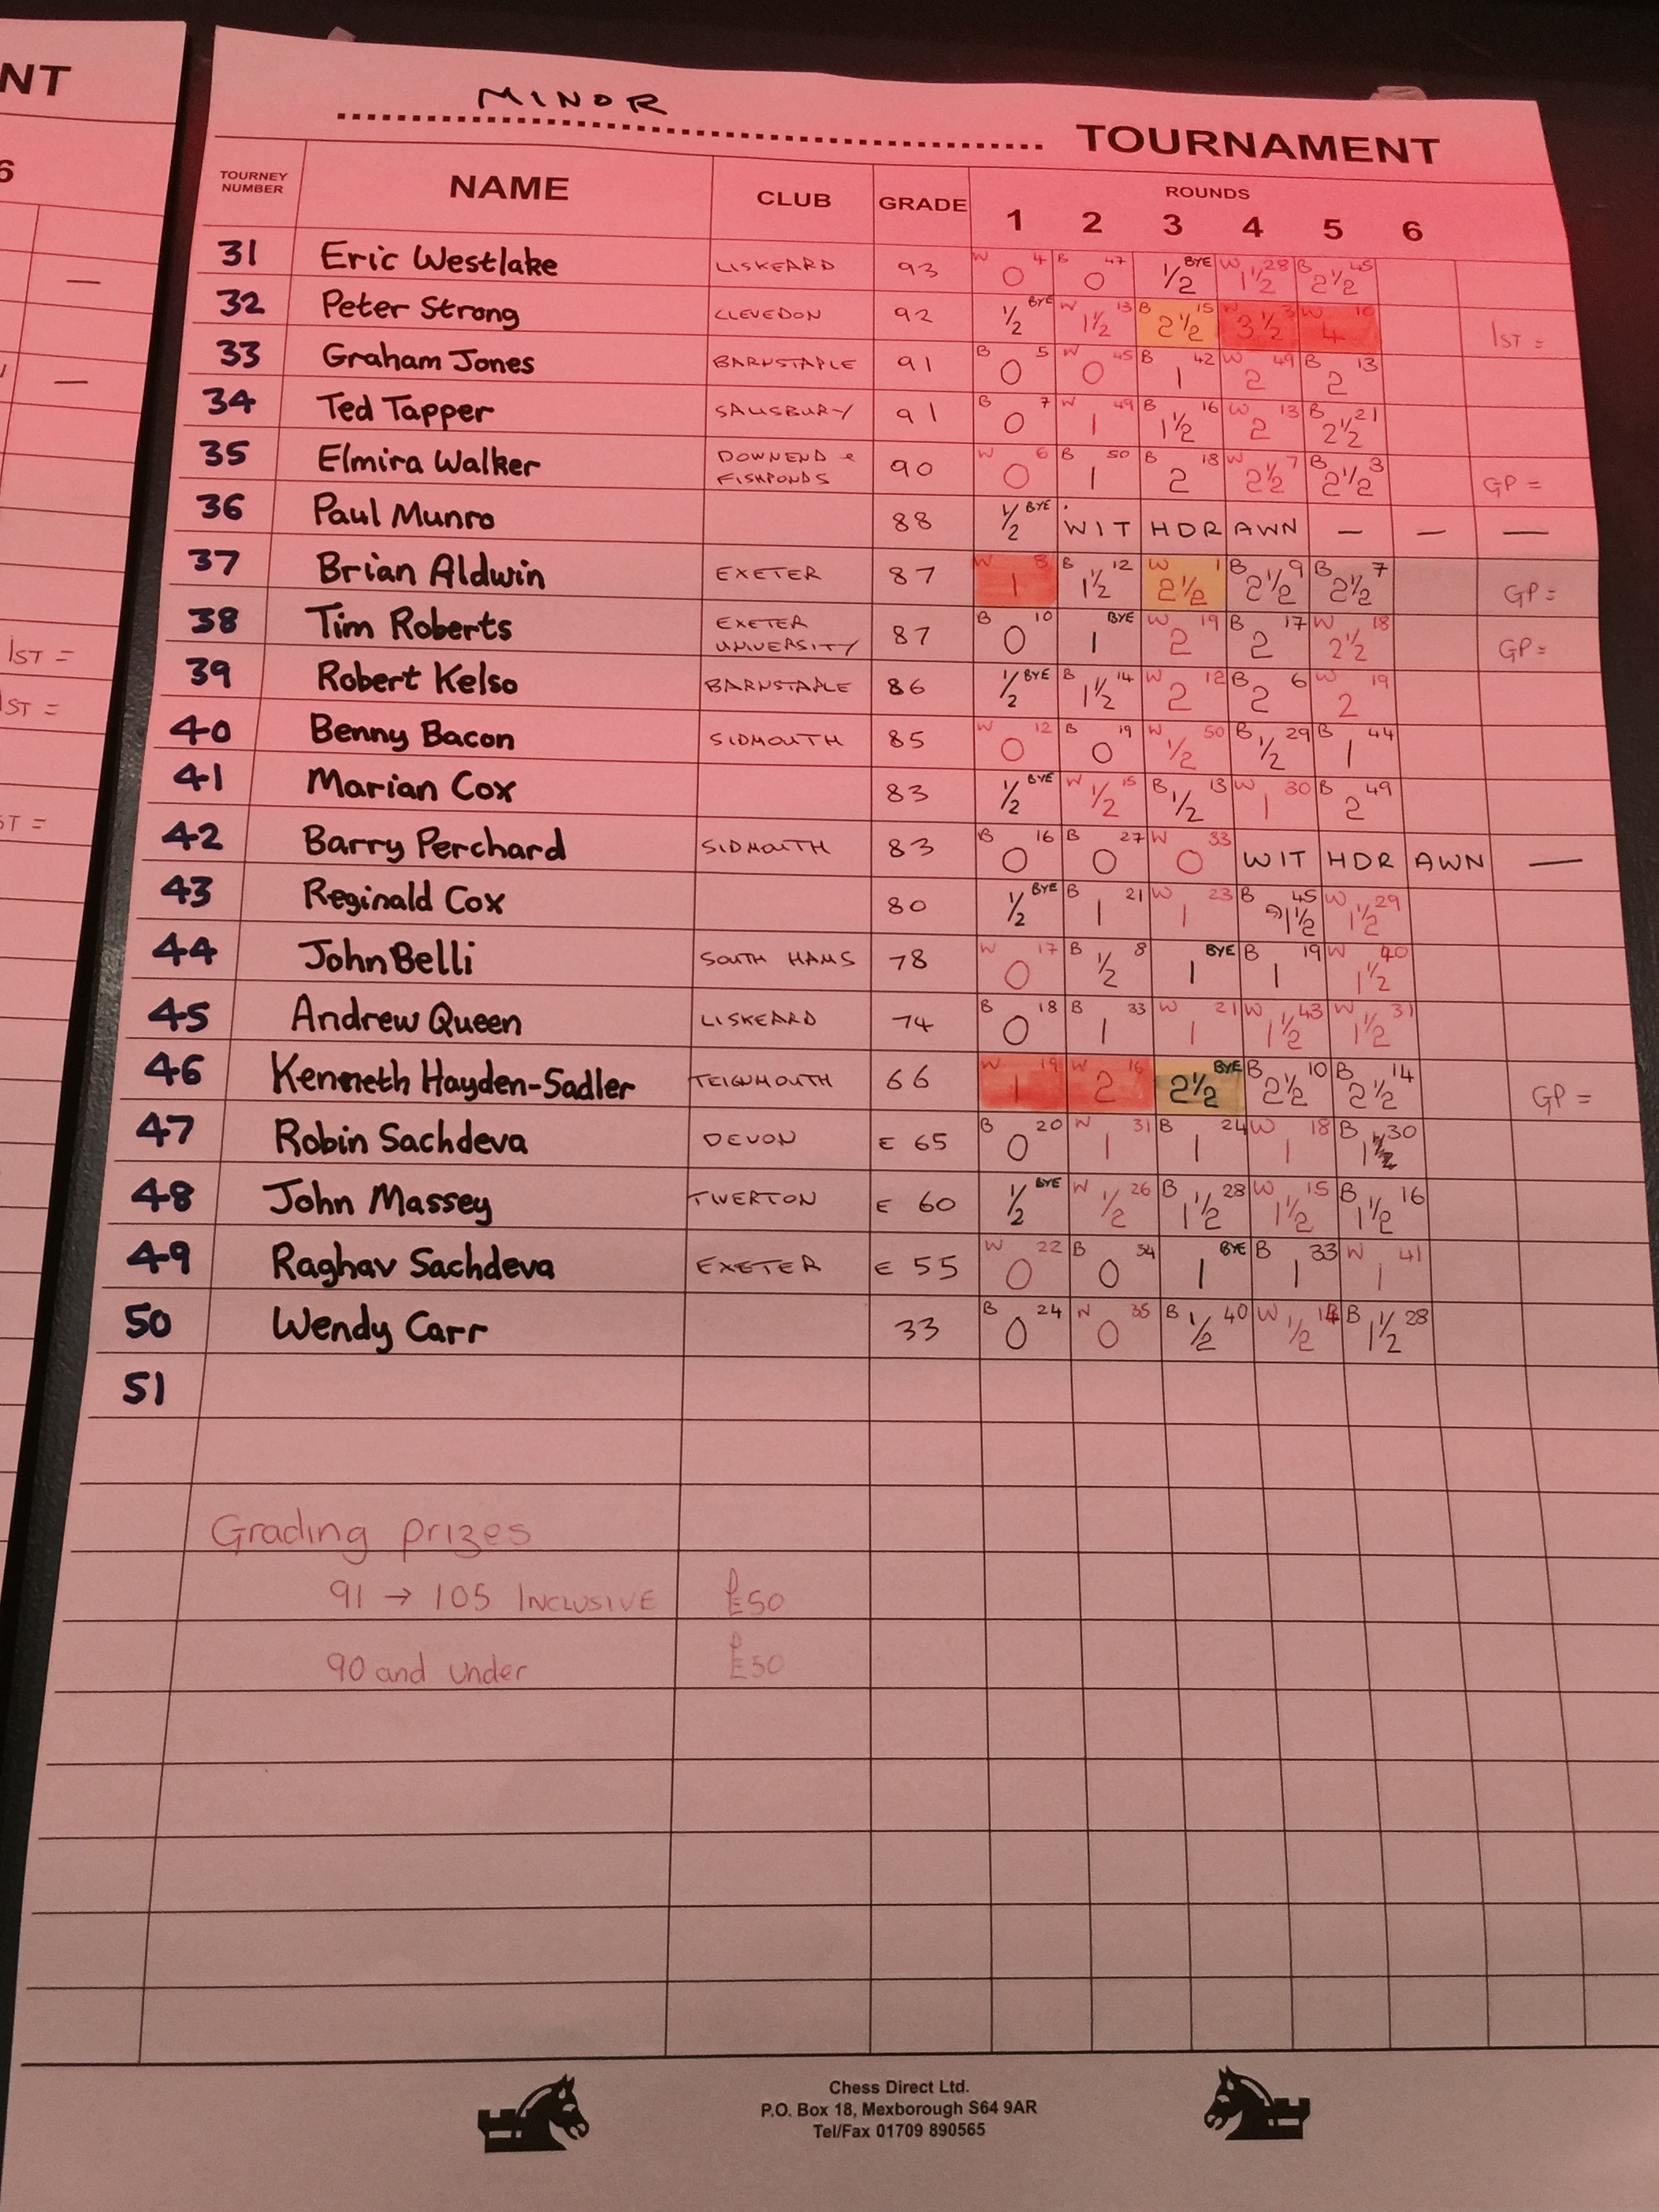 NT
6
1ST =
ST =
ST =
MINOR TOURNAMENT
TOURNEY NUMBER NAME CLUB GRADE ROUNDS
1 2 3 4 5 6
31 Eric Westlake LISKEARD 93 W 4 0 B 47 0 BYE 1/2 W 28 1 1/2 B 45 2 1/2
32 Peter Strong CLEVEDON 92 BYE 1/2 W 13 1 1/2 B 15 2 1/2 W 3 3 1/2 W 10 4 1ST =
33 Graham Jones BARNSTAPLE 91 B 5 0 W 45 0 B 42 1 W 49 2 B 13 2
34 Ted Tapper SALISBURY 91 B 7 0 W 49 1 B 16 1 1/2 W 13 2 B 21 2 1/2
35 Elmira Walker DOWNEND & FISHPONDS 90 W 6 0 B 50 1 B 18 2 W 7 2 1/2 B 3 2 1/2 GP =
36 Paul Munro 88 BYE 1/2 WIT HDR AWN — — —
37 Brian Aldwin EXETER 87 W 8 1 B 12 1 1/2 W 1 2 1/2 B 9 2 1/2 B 7 2 1/2 GP =
38 Tim Roberts EXETER UNIVERSITY 87 B 10 0 BYE 1 W 19 2 B 17 2 W 18 2 1/2 GP =
39 Robert Kelso BARNSTAPLE 86 BYE 1/2 B 14 1 1/2 W 12 2 B 6 2 W 19 2
40 Benny Bacon SIDMOUTH 85 W 12 0 B 19 0 W 50 1/2 B 29 1/2 B 44 1
41 Marian Cox 83 BYE 1/2 W 15 1/2 B 13 1/2 W 30 1 B 49 2
42 Barry Perchard SIDMOUTH 83 B 16 0 B 27 0 W 33 0 WIT HDR AWN —
43 Reginald Cox 80 BYE 1/2 B 21 1 W 23 1 B 45 1 1/2 W 29 1 1/2
44 John Belli SOUTH HAMS 78 W 17 0 B 8 1/2 BYE 1 B 19 1 W 40 1 1/2
45 Andrew Queen LISKEARD 74 B 18 0 B 33 1 W 21 1 W 43 1 1/2 W 31 1 1/2
46 Kenneth Hayden-Sadler TEIGNMOUTH 66 W 19 1 W 16 2 BYE 2 1/2 B 10 2 1/2 B 14 2 1/2 GP =
47 Robin Sachdeva DEVON E 65 B 20 0 W 31 1 B 24 1 W 18 1 B 30 1
48 John Massey TIVERTON E 60 BYE 1/2 W 26 1/2 B 28 1 1/2 W 15 1 1/2 B 16 1 1/2
49 Raghav Sachdeva EXETER E 55 W 22 0 B 34 0 BYE 1 B 33 1 W 41 1
50 Wendy Carr 33 B 24 0 W 35 0 B 40 1/2 W 1/2 B 28 1 1/2
51
Grading prizes
91 → 105 INCLUSIVE £50
90 and under £50
Chess Direct Ltd.
P.O. Box 18, Mexborough S64 9AR
Tel/Fax 01709 890565